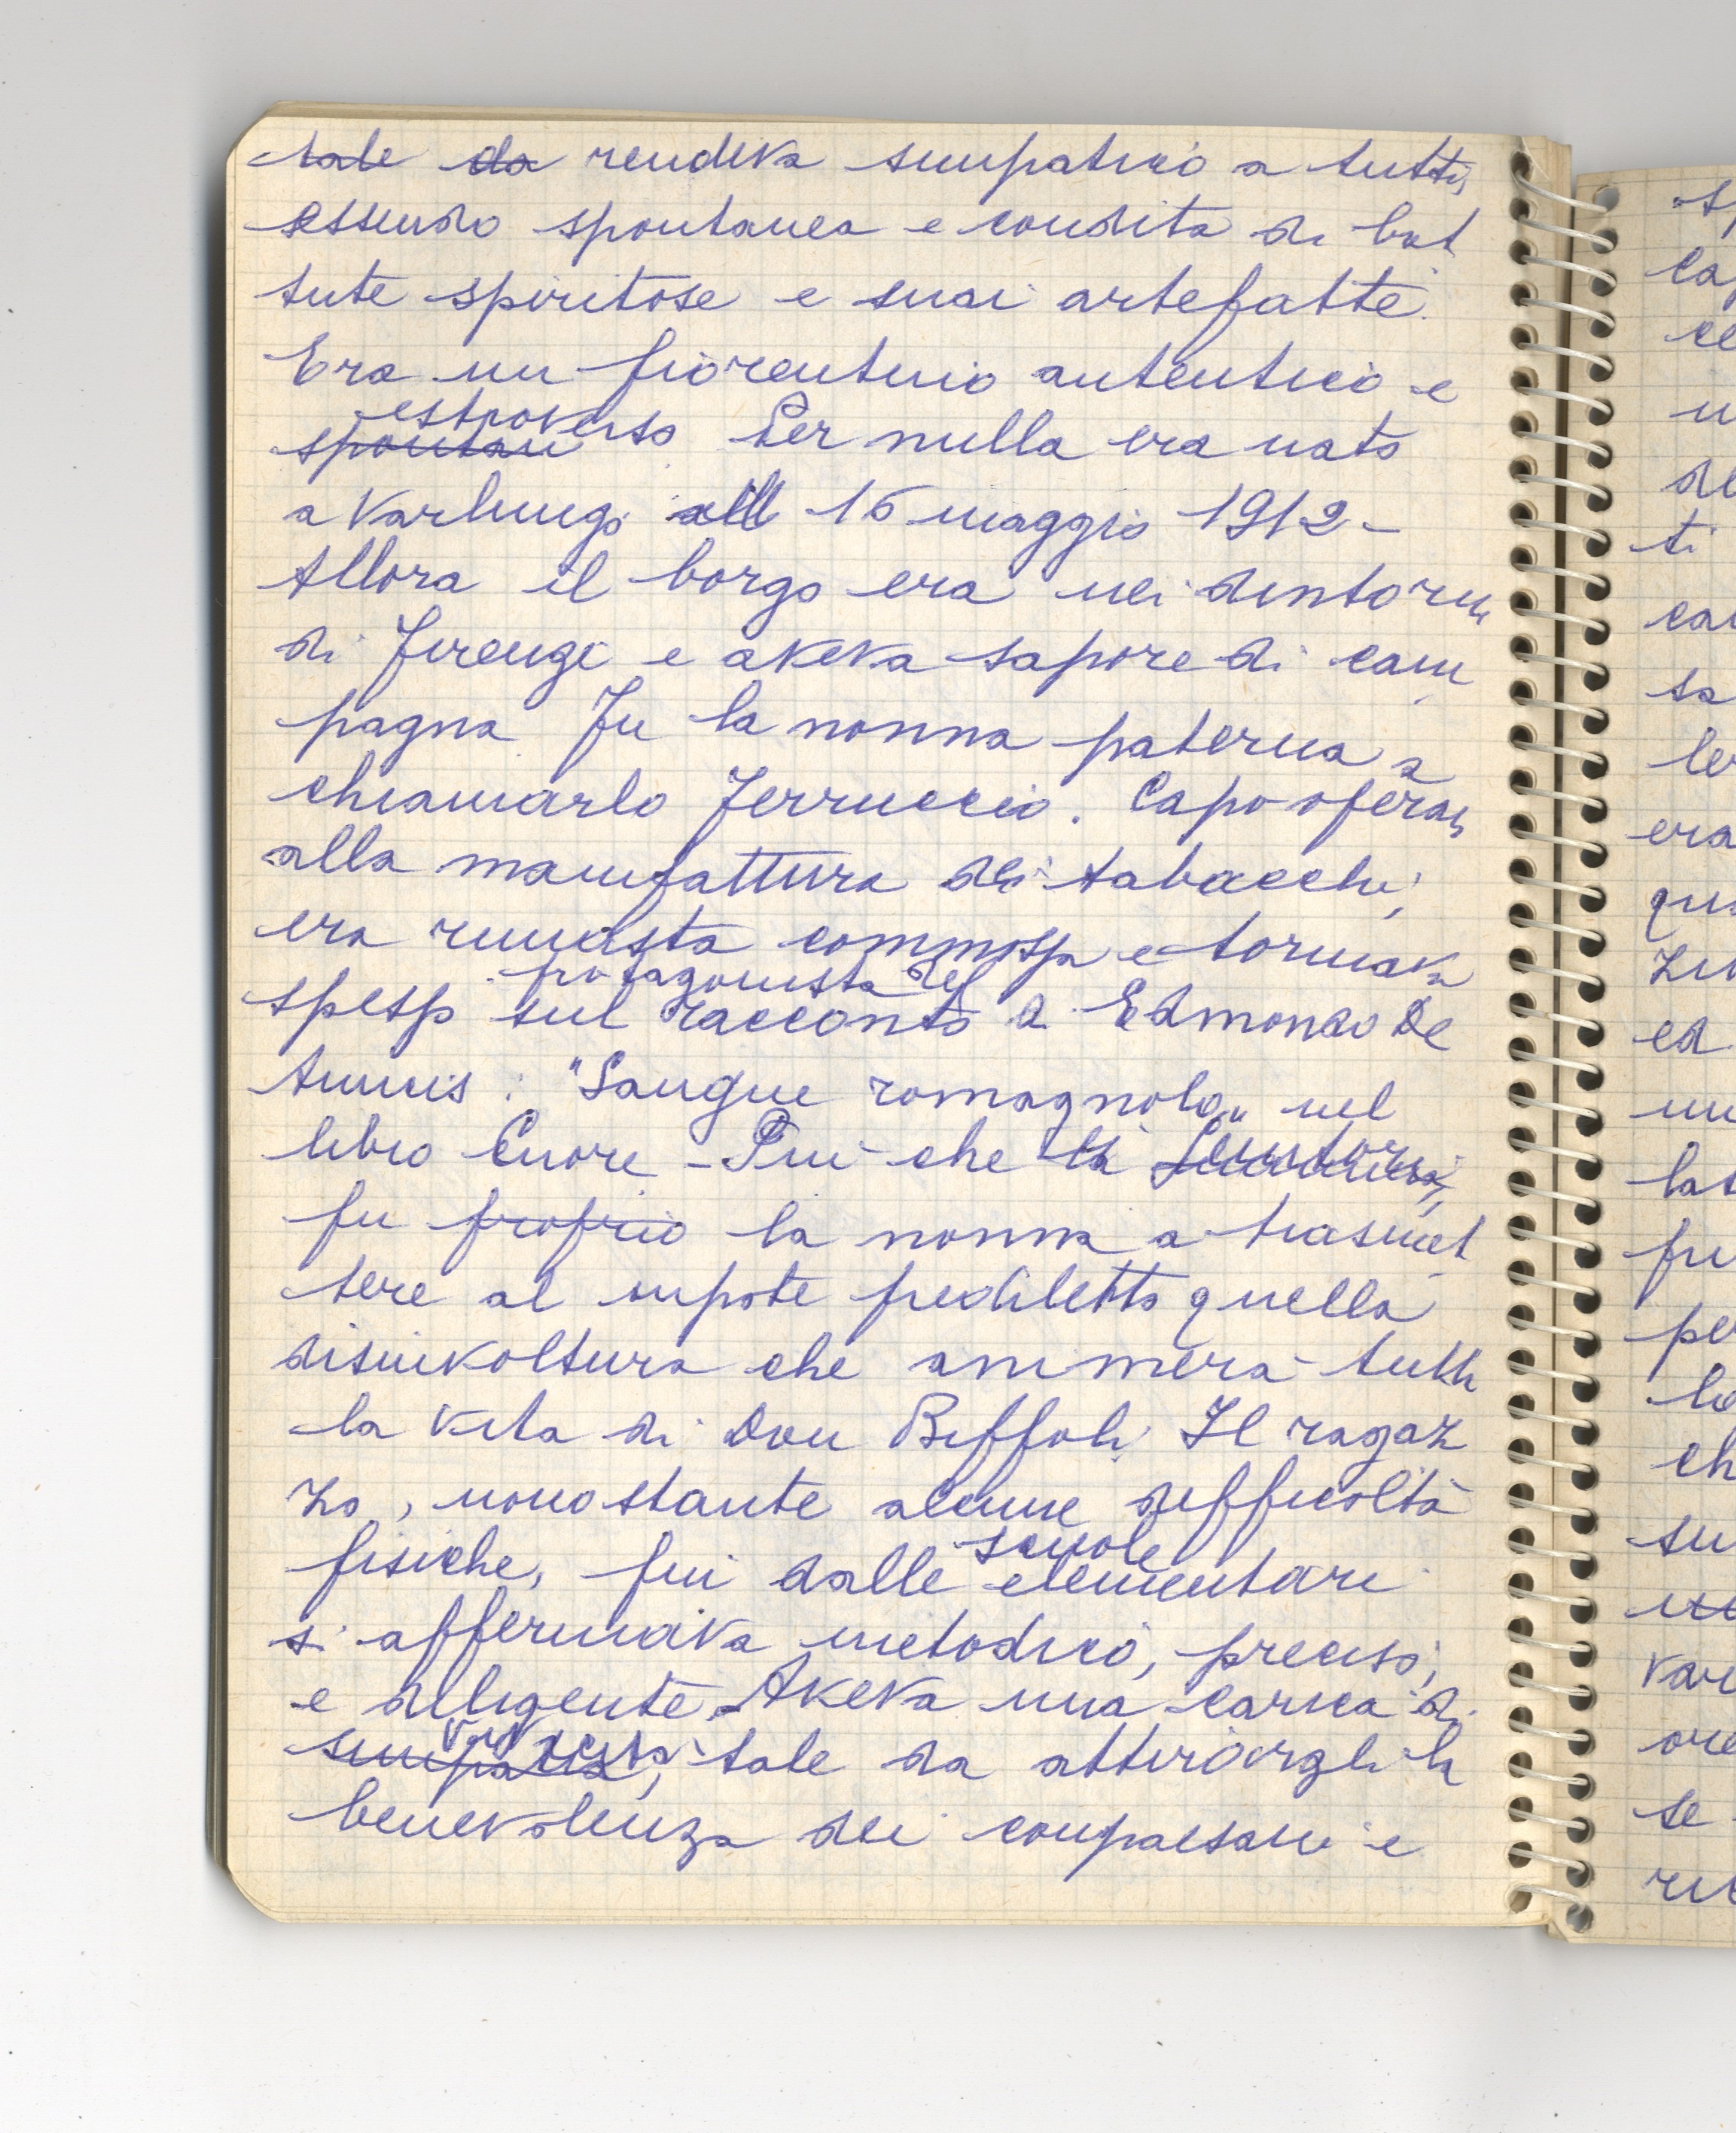 tale da rendeva simpatico a tutti,
essendo spontanea e condita di bat
tute spiritose e mai artefatte.
Era un fiorentino autentico e
estroverso
spontan Per nulla era nato
a Varlungo il 16 maggio 1912 -
Allora il borgo era nei dintorni
di Firenze e aveva sapore di cam
pagna Fu la nonna paterna a
chiamarlo Ferruccio. Capo operaia
alla manifattura dei tabacchi,
era rimasta commossa e tornava
protagonista del
spesso sul racconto di Edmondo De
Amicis : "Sangue romagnolo" nel
libro Cuore - Più che
fu proprio la nonna a trasmet
tere al nipote prediletto quella
disinvoltura che animerà tutta
la vita di Don Biffoli. Il ragaz
zo, nonostante alcune difficoltà
scuole
fisiche, fin dalle elementari
si affermava metodico, preciso,
e diligente. Aveva una carica di
simpatia, tale da attirargli la
benevolenza dei compaesani e